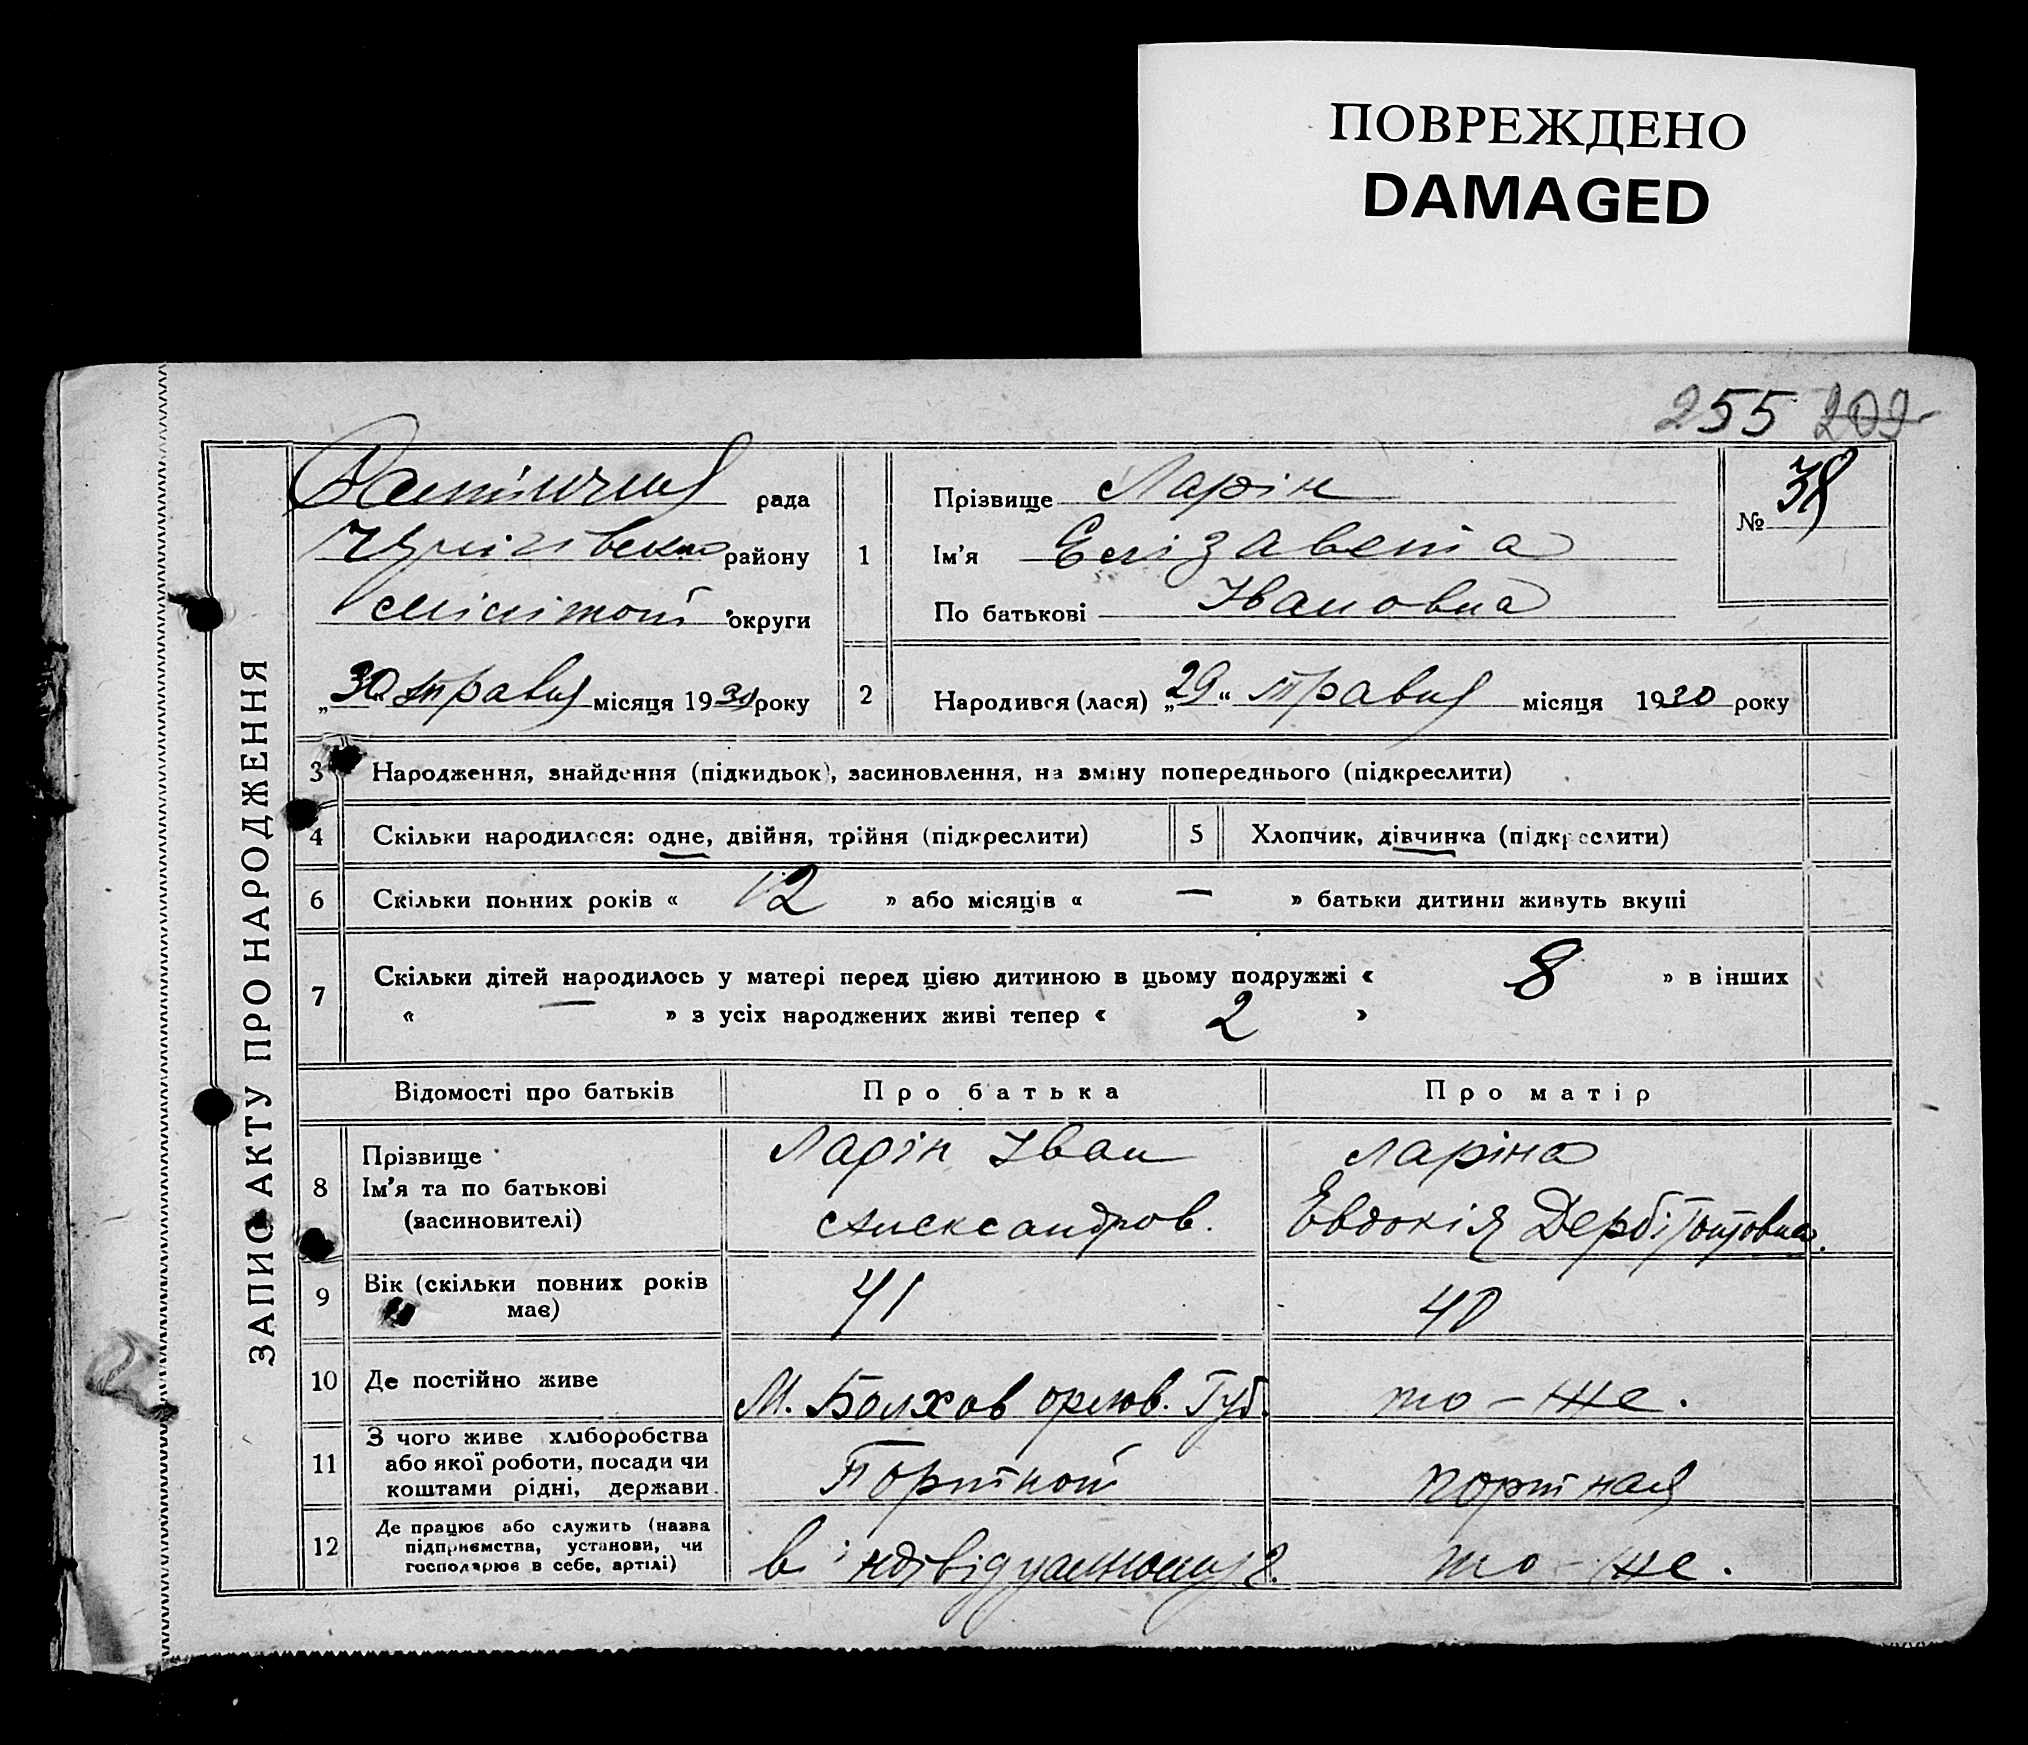 ПОВРЕЖДЕНО
DAMAGED
255 209
ЗАПИС АКТУ ПРО НАРОДЖЕННЯ
рада
району
округи
„30“ травня місяця 1930 року
1
Прізвище Ларін
Ім'я Елізавета
По батькові Івановна
№ 38
2
Народився (лася) „29“ травня місяця 1930 року
3 Народження, знайдення (підкидьок), засиновлення, на зміну попереднього (підкреслити)
4 Скільки народилося: одне, двійня, трійня (підкреслити)
5 Хлопчик, дівчинка (підкреслити)
6 Скільки повних років « 12 » або місяців « — » батьки дитини живуть вкупі
7 Скільки дітей народилось у матері перед цією дитиною в цьому подружжі « 8 » в інших
« — » з усіх народжених живі тепер « 2 »
Відомості про батьків Про батька Про матір
8 Прізвище
Ім'я та по батькові
(засиновителі)
Ларін Іван
Александров.
Ларіна
Евдокія
9 Вік (скільки повних років
має)
41
40
10 Де постійно живе
М. Болхов орлов. Губ.
то-же.
11 З чого живе хліборобства
або якої роботи, посади чи
коштами рідні, держави
Портной
портная
12 Де працює або служить (назва
підприємства, установи, чи
господарює в себе, артілі)
в
то-же.